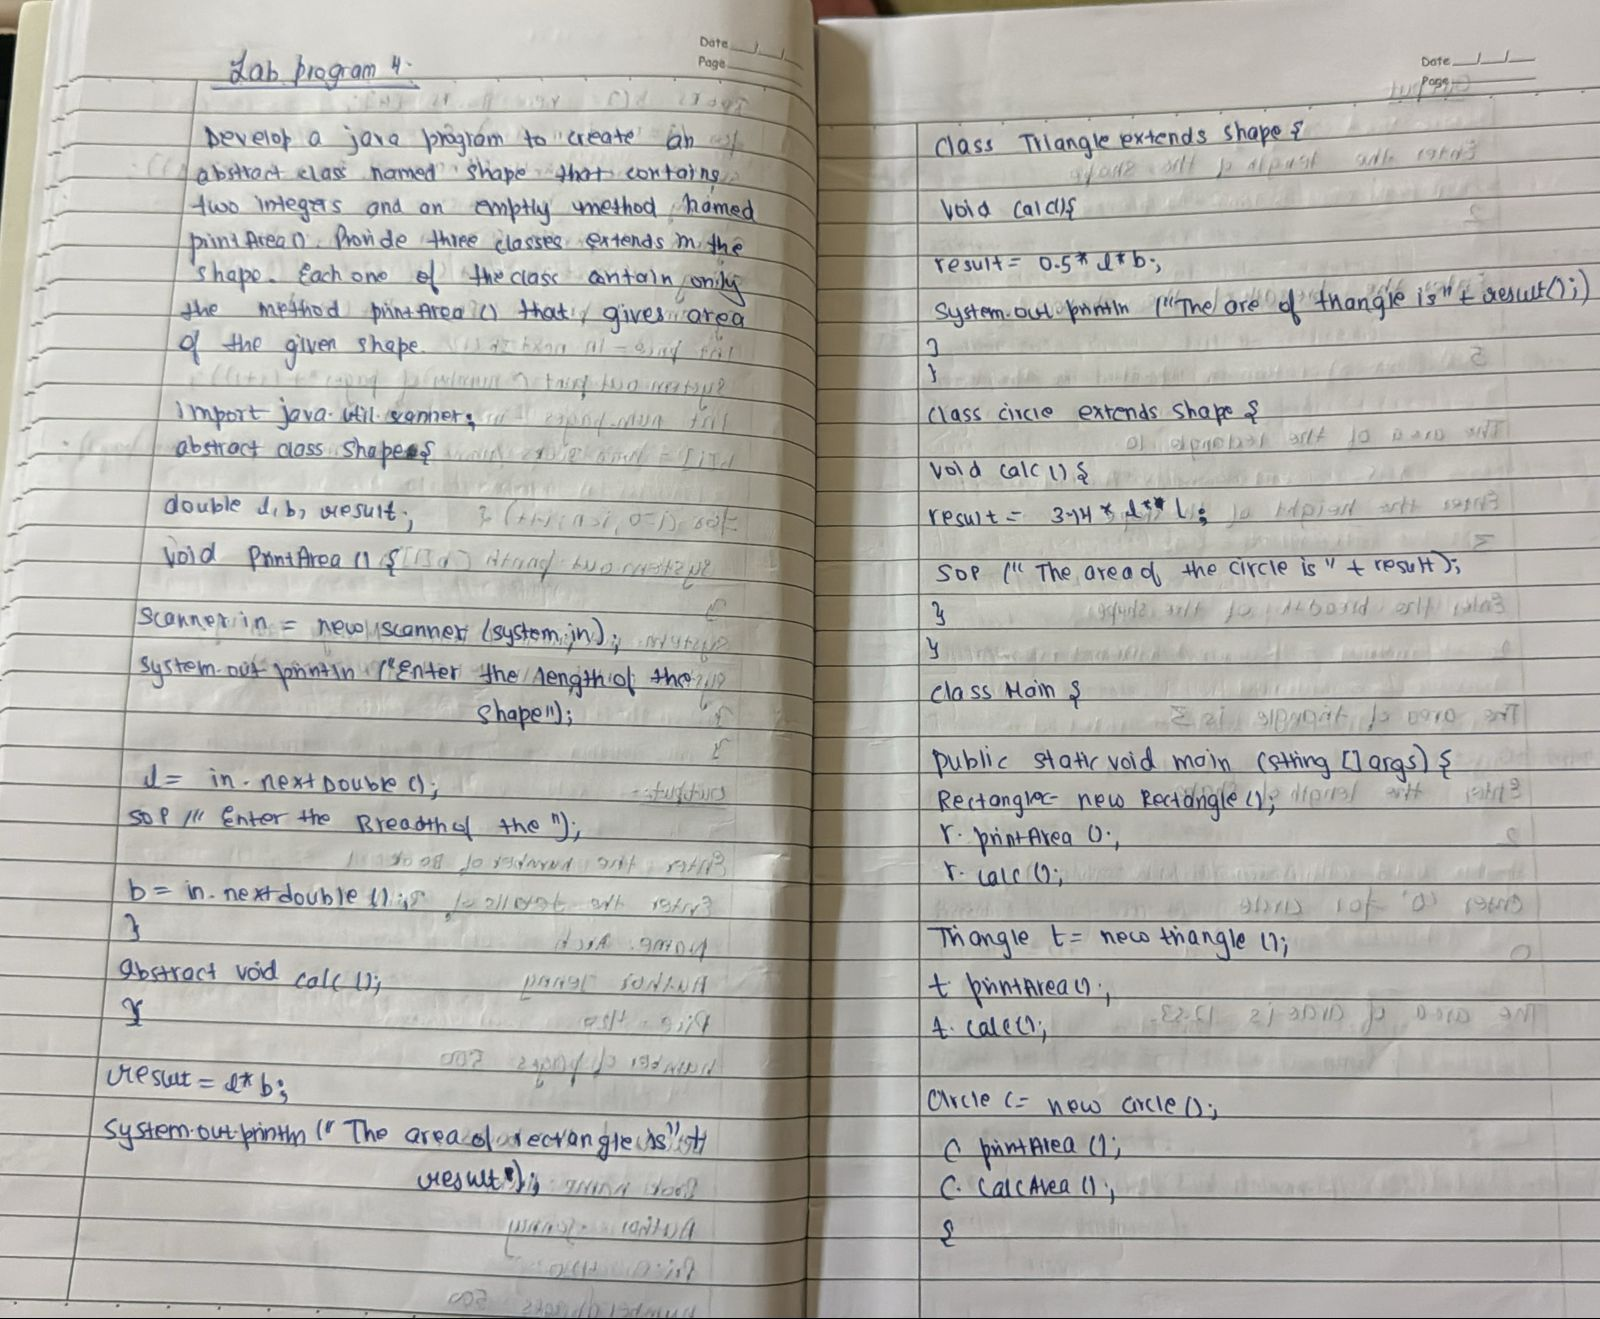 Date
Page
Lab program 4.
Develop a java program to create an
abstract class named shape that contains
two integers and an emptly method named
printArea(). Provide three classes extends in the
shape. Each one of the class contain only
the method printArea () that gives area
of the given shape.
import java.util.scanner;
abstract class Shape {
double l, b, result;
void PrintArea () {
Scanner in = new scanner (system.in);
System.out.println ("Enter the length of the
shape");
l = in.nextDouble ();
SOP ("Enter the Breadth of the ");
b = in.nextdouble ();
}
abstract void calc ();
}
result = l*b;
System.out.println (" The area of rectangle is" +
result);
Date
Page
class Triangle extends shape {
void calc(){
result = 0.5* l*b;
System.out.println ("The are of triangle is" + result();)
}
}
class circle extends shape {
void calc () {
result = 3.14 * l** l;
SOP (" The area of the circle is " + result);
}
}
class Main {
public static void main (string [] args) {
Rectangle r = new Rectangle ();
r. printArea ();
r. calc ();
Triangle t = new triangle ();
t. printArea();
t. calc();
Circle c = new circle ();
C printArea ();
C. CalcArea ();
{